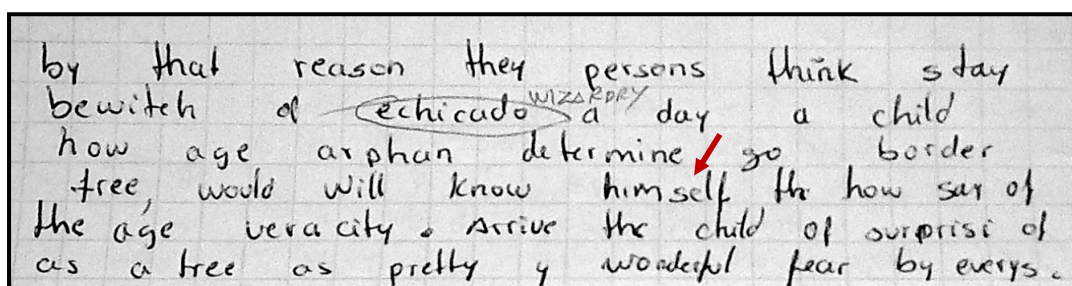 by that reason they persons think stay
bewitch of echicado WIZARDRY a day a child
how age arphan determine go border
tree, would will know himself the how say of
the age veracity. Arrive the child of surprisi of
as a tree as pretty y wonderful fear by everys.